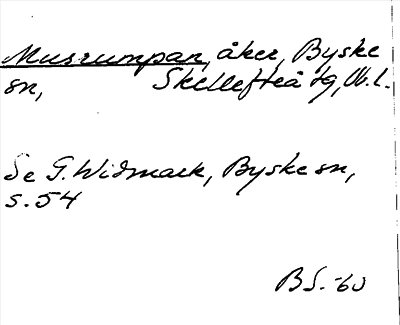 Musrumpan, åker, Byske
sn, Skellefteå tg, Vb. l.
Se G. Widmark, Byske sn,
s. 54
BS. -60